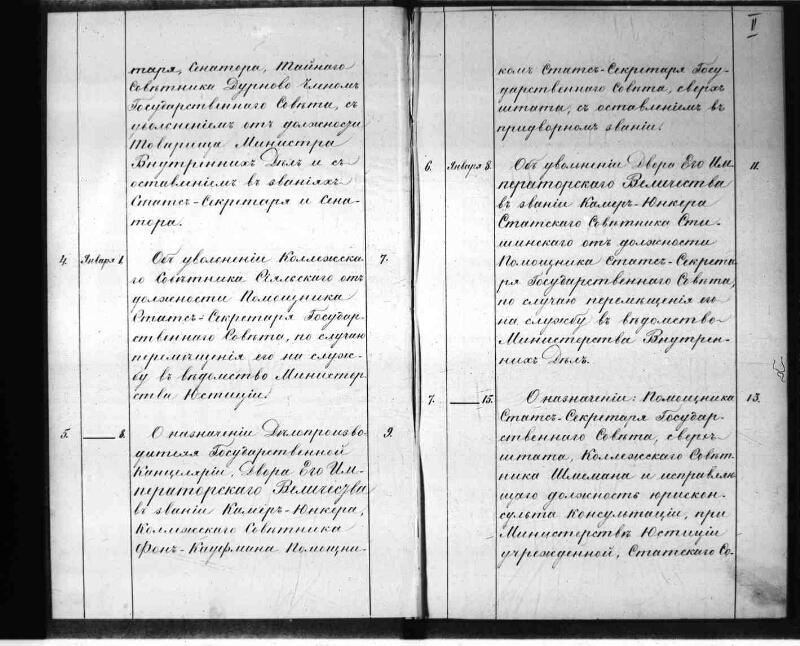 таря, Сенатора, Тайнаго
Совѣтника Дурново Членомъ
Государственнаго Совѣта, съ
увольненіемъ отъ должности
Товарища Министра
Внутреннихъ Дѣлъ и съ
оставленіемъ въ званіяхъ
Статсъ-Секретаря и Сена-
тора.
4. Января 1. Объ увольненіи Коллежска- 7.
го Совѣтника отъ
должности Помощника
Статсъ-Секретаря Государ-
ственнаго Совѣта, по случаю
перемѣщенія его на служ-
бу въ вѣдомство Министер
ства Юстиціи.
5. — 8. О назначеніи Дѣлопроизво- 9.
дителя Государственной
Канцеляріи, Двора Его Им-
ператорскаго Величества
въ званіи Камеръ-Юнкера,
Коллежскаго Совѣтника
Фонъ-Кауфмана Помощни-
II
комъ Статсъ-Секретаря Госу-
дарственнаго Совѣта, сверхъ
штата, съ оставленіемъ въ
придворномъ званіи.
6. Января 8. Объ увольненіи Двора Его Им- 11.
ператорскаго Величества
въ званіи Камеръ-Юнкера
Статскаго Совѣтника Сти-
шинскаго отъ должности
Помощника Статсъ-Секрета
ря Государственнаго Совѣта,
по случаю перемѣщенія его
на службу въ вѣдомство
Министерства Внутрен-
нихъ Дѣлъ.
7. — 15. О назначеніи: Помощника 13.
Статсъ-Секретаря Государ-
ственнаго Совѣта, сверхъ
штата, Коллежскаго Совѣт-
ника Шмемана и исправляю
щаго должность юрискон-
сульта Консультаціи, при
Министерствѣ Юстиціи
учрежденной, Статскаго Со-